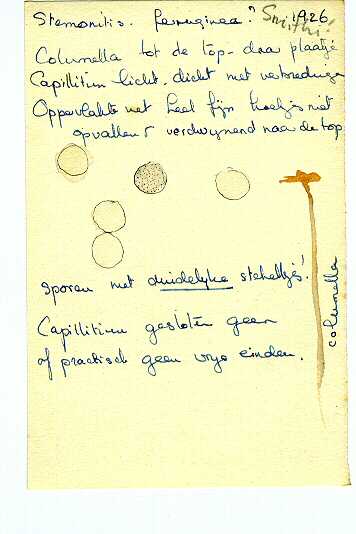 Stemonitis. ferruginea? Smithii! 1926
Columella tot de top - daar plaatje
Capillitium licht, dicht met verbredingen
Oppervlakte net heel fijn hoekjes niet
opvallend verdwijnend naar de top
sporen met duidelijke stekeltjes!
Capillitium gesloten geen
of practisch geen vrije einden.
columella